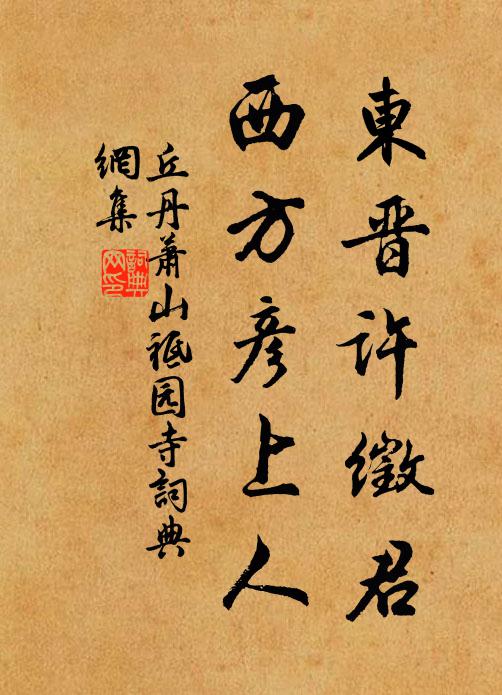 東晋許徵君
西方彦上人
丘丹蕭山祗园寺詞典
網集
詞典
网印